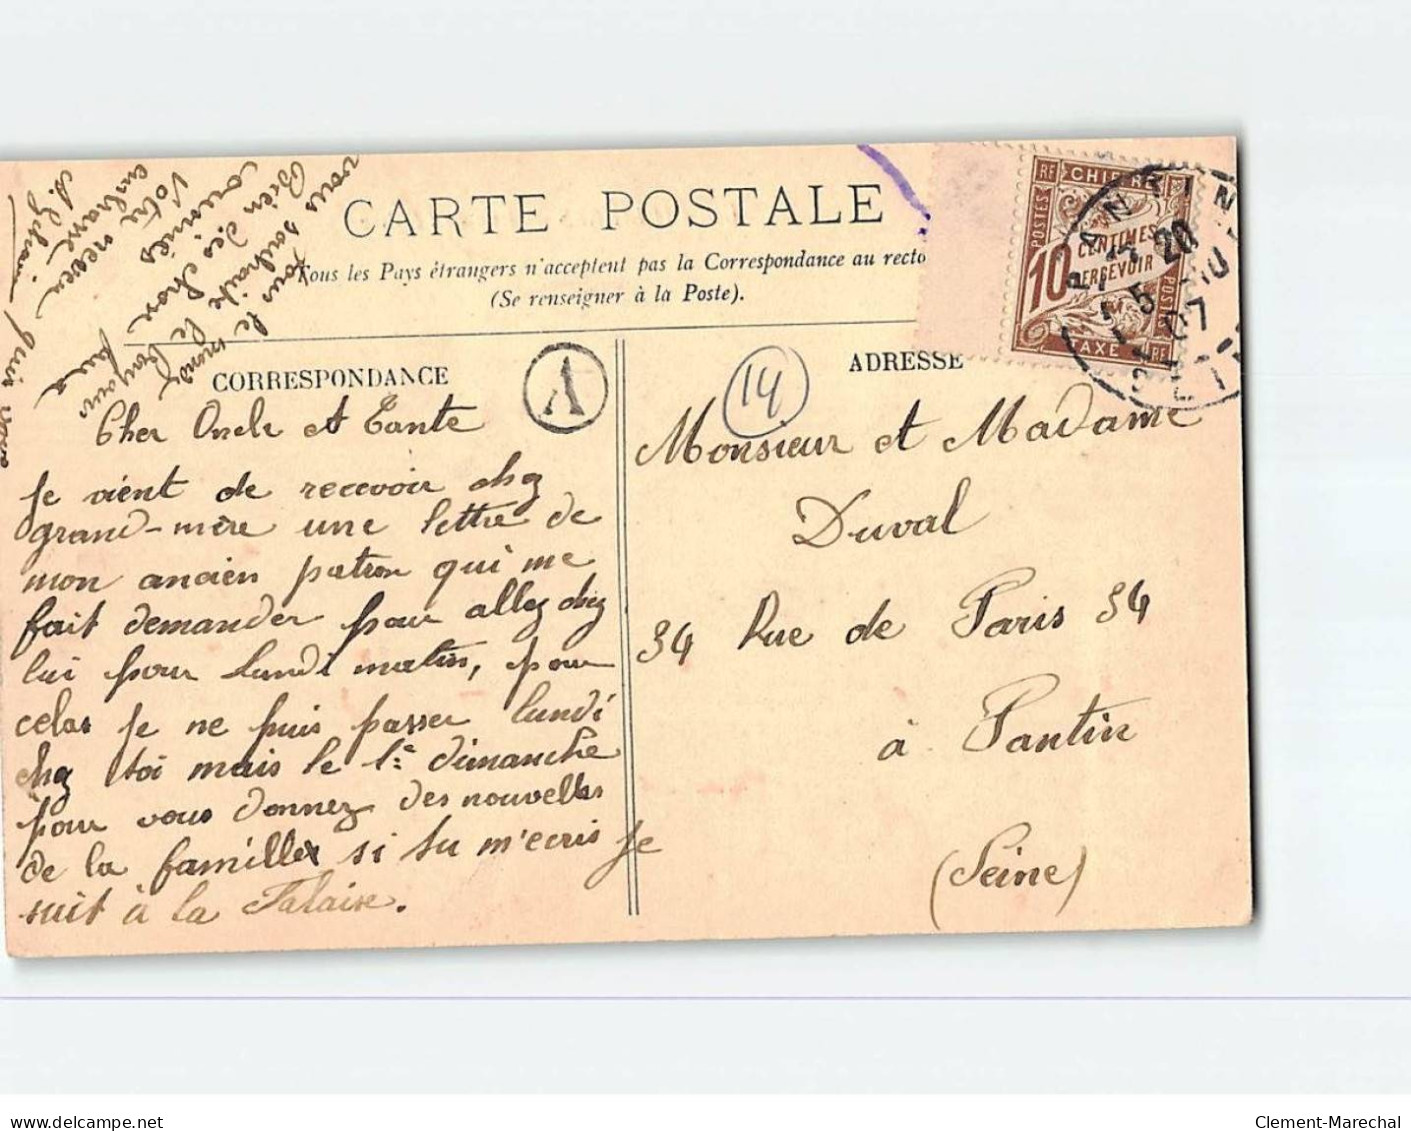 CARTE POSTALE
Tous les Pays étrangers n'acceptent pas la Correspondance au recto
(Se renseigner à la Poste).
CORRESPONDANCE
A
14
ADRESSE
RF CHIFFRE
POSTES
10 CENTIMES
PERCEVOIR
POSTES
TAXE RF
PANTIN
20
5
07
Cher Oncle et Tante
Je vient de recevoir chez
grand-mère une lettre de
mon ancien patron qui me
fait demander pour allez chez
lui pour Lundi matin, pour
celas je ne puis passer lundi
chez toi mais le 1er dimanche
pour vous donnez des nouvelles
de la famille si tu m'ecris je
suit à la Falaise.
qui vous
vous souhaite le bonjour
tous le monde
Bien des chose
Votre neveu
embrasse
Monsieur et Madame
Duval
34 Rue de Paris 34
à Pantin
(Seine)
delcampe.net
Clement-Marechal